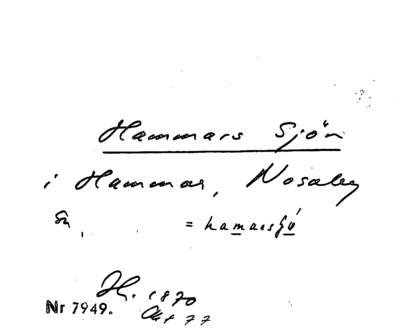 Hammars Sjön
i Hammar, Nosaby
= hamarsjö
H. 1870
Nr 7949.
77